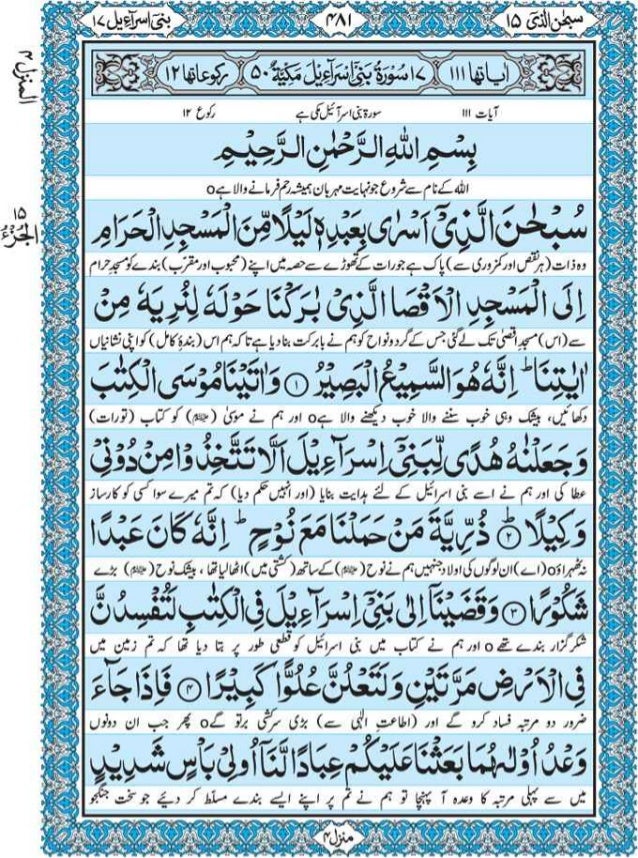 سبحٰن الذی ۱۵
۴۸۱
بنی اسرآءیل ۱۷
المنزل ۴
اٰیاتها ۱۱۱
۱۷ سُوْرَةُ بَنِیْۤ اِسْرَآءِیْلَ مَكِّیَّةٌ ۵۰
رکوعاتها ۱۲
آیات ۱۱۱
سورۃ بنی اسرآئیل مکی ہے
رکوع ۱۲
بِسْمِ اللهِ الرَّحْمٰنِ الرَّحِيْمِ
اللہ کے نام سے شروع جو نہایت مہربان ہمیشہ رحم فرمانے والا ہےo
الجزء ۱۵
سُبْحٰنَ الَّذِیْۤ اَسْرٰى بِعَبْدِهٖ لَیْلًا مِّنَ الْمَسْجِدِ الْحَرَامِ
وہ ذات (ہر نقص اور کمزوری سے) پاک ہے جو رات کے تھوڑے سے حصہ میں اپنے (محبوب اور مقرّب) بندے کو مسجدِ حرام
اِلَى الْمَسْجِدِ الْاَقْصَا الَّذِیْ بٰرَكْنَا حَوْلَهٗ لِنُرِیَهٗ مِنْ
سے (اس) مسجدِ اقصیٰ تک لے گئی جس کے گرد و نواح کو ہم نے بابرکت بنا دیا ہے تاکہ ہم اس (بندۂ کامل) کو اپنی نشانیاں
اٰیٰتِنَا ؕ اِنَّهٗ هُوَ السَّمِیْعُ الْبَصِیْرُ ۝۱ وَ اٰتَیْنَا مُوْسَى الْكِتٰبَ
دکھائیں، بیشک وہی خوب سننے والا خوب دیکھنے والا ہےo اور ہم نے موسیٰ (ﷺ) کو کتاب (تورات)
وَ جَعَلْنٰهُ هُدًى لِّبَنِیْۤ اِسْرَآءِیْلَ اَلَّا تَتَّخِذُوْا مِنْ دُوْنِیْ
عطا کی اور ہم نے اسے بنی اسرائیل کے لئے ہدایت بنایا (اور انہیں حکم دیا) کہ تم میرے سوا کسی کو کارساز
وَكِیْلًا ۝۲ؕ ذُرِّیَّةَ مَنْ حَمَلْنَا مَعَ نُوْحٍ ؕ اِنَّهٗ كَانَ عَبْدًا
نہ ٹھہراؤo (اے) ان لوگوں کی اولاد جنہیں ہم نے نوح (ﷺ) کے ساتھ (کشتی میں) اٹھا لیا تھا، بیشک نوح (ﷺ) بڑے
شَكُوْرًا ۝۳ وَ قَضَیْنَاۤ اِلٰى بَنِیْۤ اِسْرَآءِیْلَ فِی الْكِتٰبِ لَتُفْسِدُنَّ
شکر گزار بندے تھےo اور ہم نے کتاب میں بنی اسرائیل کو قطعی طور پر بتا دیا تھا کہ تم زمین میں
فِی الْاَرْضِ مَرَّتَیْنِ وَ لَتَعْلُنَّ عُلُوًّا كَبِیْرًا ۝۴ فَاِذَا جَآءَ
ضرور دو مرتبہ فساد کرو گے اور (اطاعتِ الٰہی سے) بڑی سرکشی برتو گےo پھر جب ان دونوں
وَعْدُ اُوْلٰىهُمَا بَعَثْنَا عَلَیْكُمْ عِبَادًا لَّنَاۤ اُولِیْ بَاْسٍ شَدِیْدٍ
میں سے پہلی مرتبہ کا وعدہ آ پہنچا تو ہم نے تم پر اپنے ایسے بندے مسلّط کر دیئے جو سخت جنگجو
منزل ۴